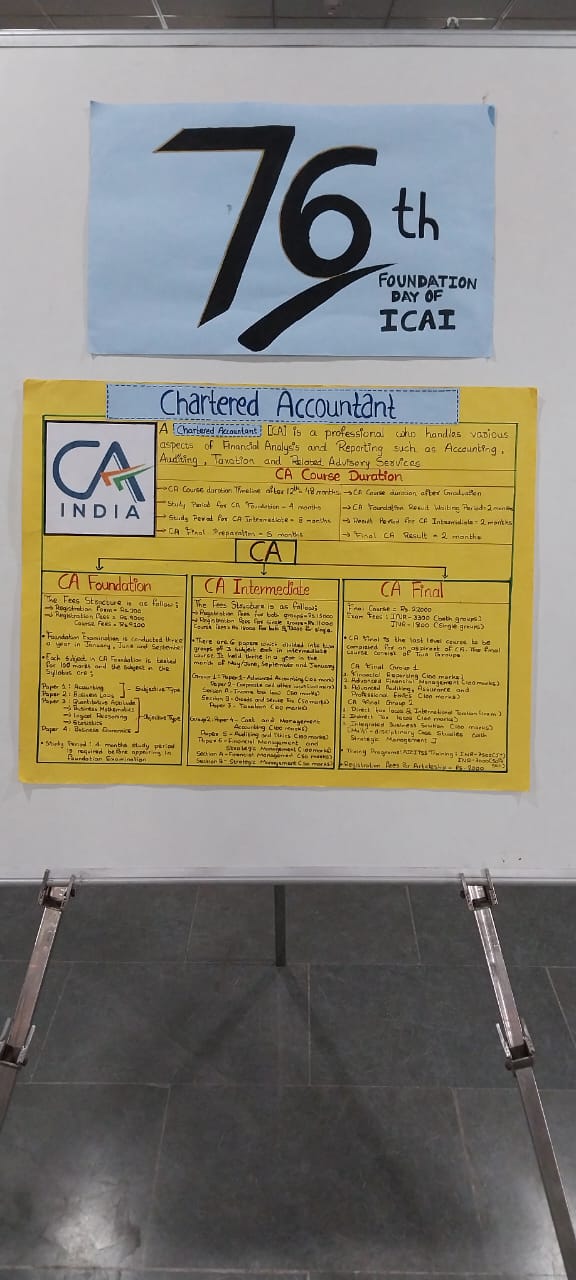 76th
FOUNDATION
DAY OF
ICAI
Chartered Accountant
CA
INDIA
A Chartered Accountant [CA] is a professional who handles various
aspects of Financial Analysis and Reporting such as Accounting,
Auditing, Taxation and Related Advisory Services
CA Course Duration
→ CA Course duration Timeline after 12th 48 months
→ Study Period for CA Foundation - 4 months
→ Study Period for CA Intermediate = 8 months
→ CA Final Preparation = 6 months
→ CA Course duration after Graduation
→ CA Foundation Result Waiting Period = 2 months
→ Result Period for CA Intermediate = 2 months
→ Final CA Result = 2 months
CA
CA Foundation
The Fees Structure is as follow;
→ Registration Form = Rs.200
→ Registration Fees = Rs.9000
Course Fees = Rs.9200
• Foundation Examination is conducted thrice
a year in January, June and September
• Each subject in CA Foundation is tested
for 100 marks and the subject in the
Syllabus are;
Paper 1: Accounting
Paper 2: Business Laws
- Subjective Type
Paper 3: Quantitative Aptitude
→ Business Mathematics
→ Logical Reasoning
→ Statistics
Paper 4: Business Economics
- Objective Type
• Study Period: 4 months study period
is required before appearing in
Foundation Examination
CA Intermediate
The Fees Structure is as follow:
→ Registration Fees for both groups = Rs.15000
→ Registration Fees for Single groups = Rs.11000
• There are 6 papers which divided into two
groups of 3 subject each in intermediate
course. It held thrice in a year in the
month of May/June, September and January
Group 1: Paper 1 - Advanced Accounting (100 mark)
Paper 2 - Corporate and other laws (100 mark)
Section A - Income tax law (50 mark)
Section B - Goods and Service Tax (50 marks)
Paper 3 - Taxation (100 marks)
Group 2: Paper 4 - Cost and Management
Accounting (100 marks)
Paper 5 - Auditing and Ethics (100 marks)
Paper 6 - Financial Management and
Strategic Management (100 marks)
Section A - Financial Management (50 marks)
Section B - Strategic Management (50 marks)
CA Final
Final Course = Rs. 22000
Exam Fees: INR - 3300 (both groups)
INR - 1800 (Single groups)
• CA Final is the last level course to be
completed for an aspirant of CA. The final
course consist of Two Groups.
CA Final Group 1
1. Financial Reporting (100 marks)
2. Advanced Financial Management (100 marks)
3. Advanced Auditing, Assurance and
Professional Ethics (100 marks)
CA Final Group 2
1. Direct tax laws & International Taxation
2. Indirect Tax laws (100 marks)
3. Integrated Business Solution (100 marks)
[Multi-disciplinary Case Studies with
Strategic Management]
• Training Programs: AICITSS Training: INR - 7500 (IT)
INR - 7000
• Registration Fees for Articleship = Rs - 2000